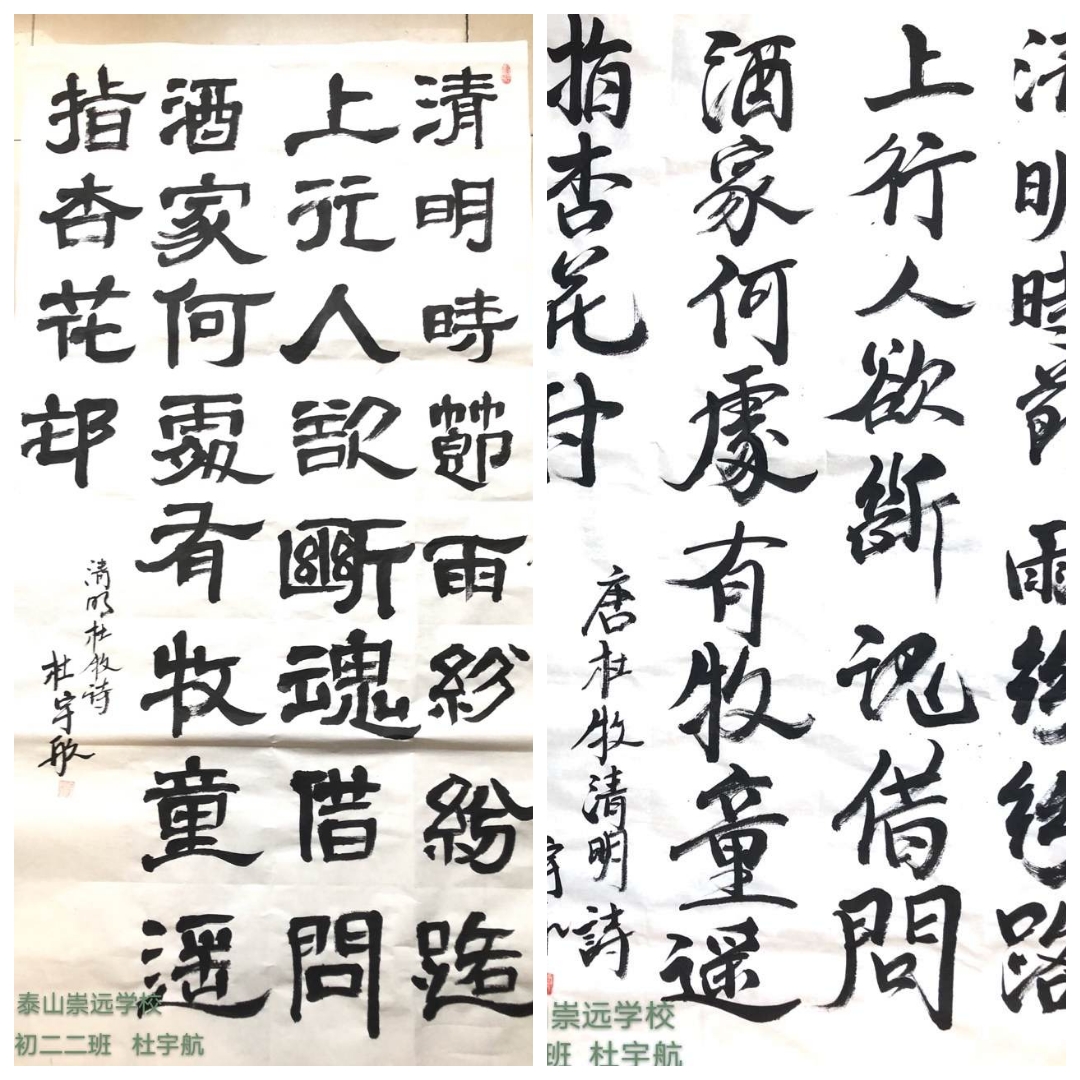 清明時節雨紛紛路
上行人欲斷魂借問
酒家何處有牧童遥
指杏花邨
清明杜牧詩
杜宇航
泰山崇远学校
初二二班 杜宇航
清明時節雨紛紛路
上行人欲斷魂借問
酒家何處有牧童遥
指杏花村
唐杜牧清明詩
宇航
崇远学校
班 杜宇航